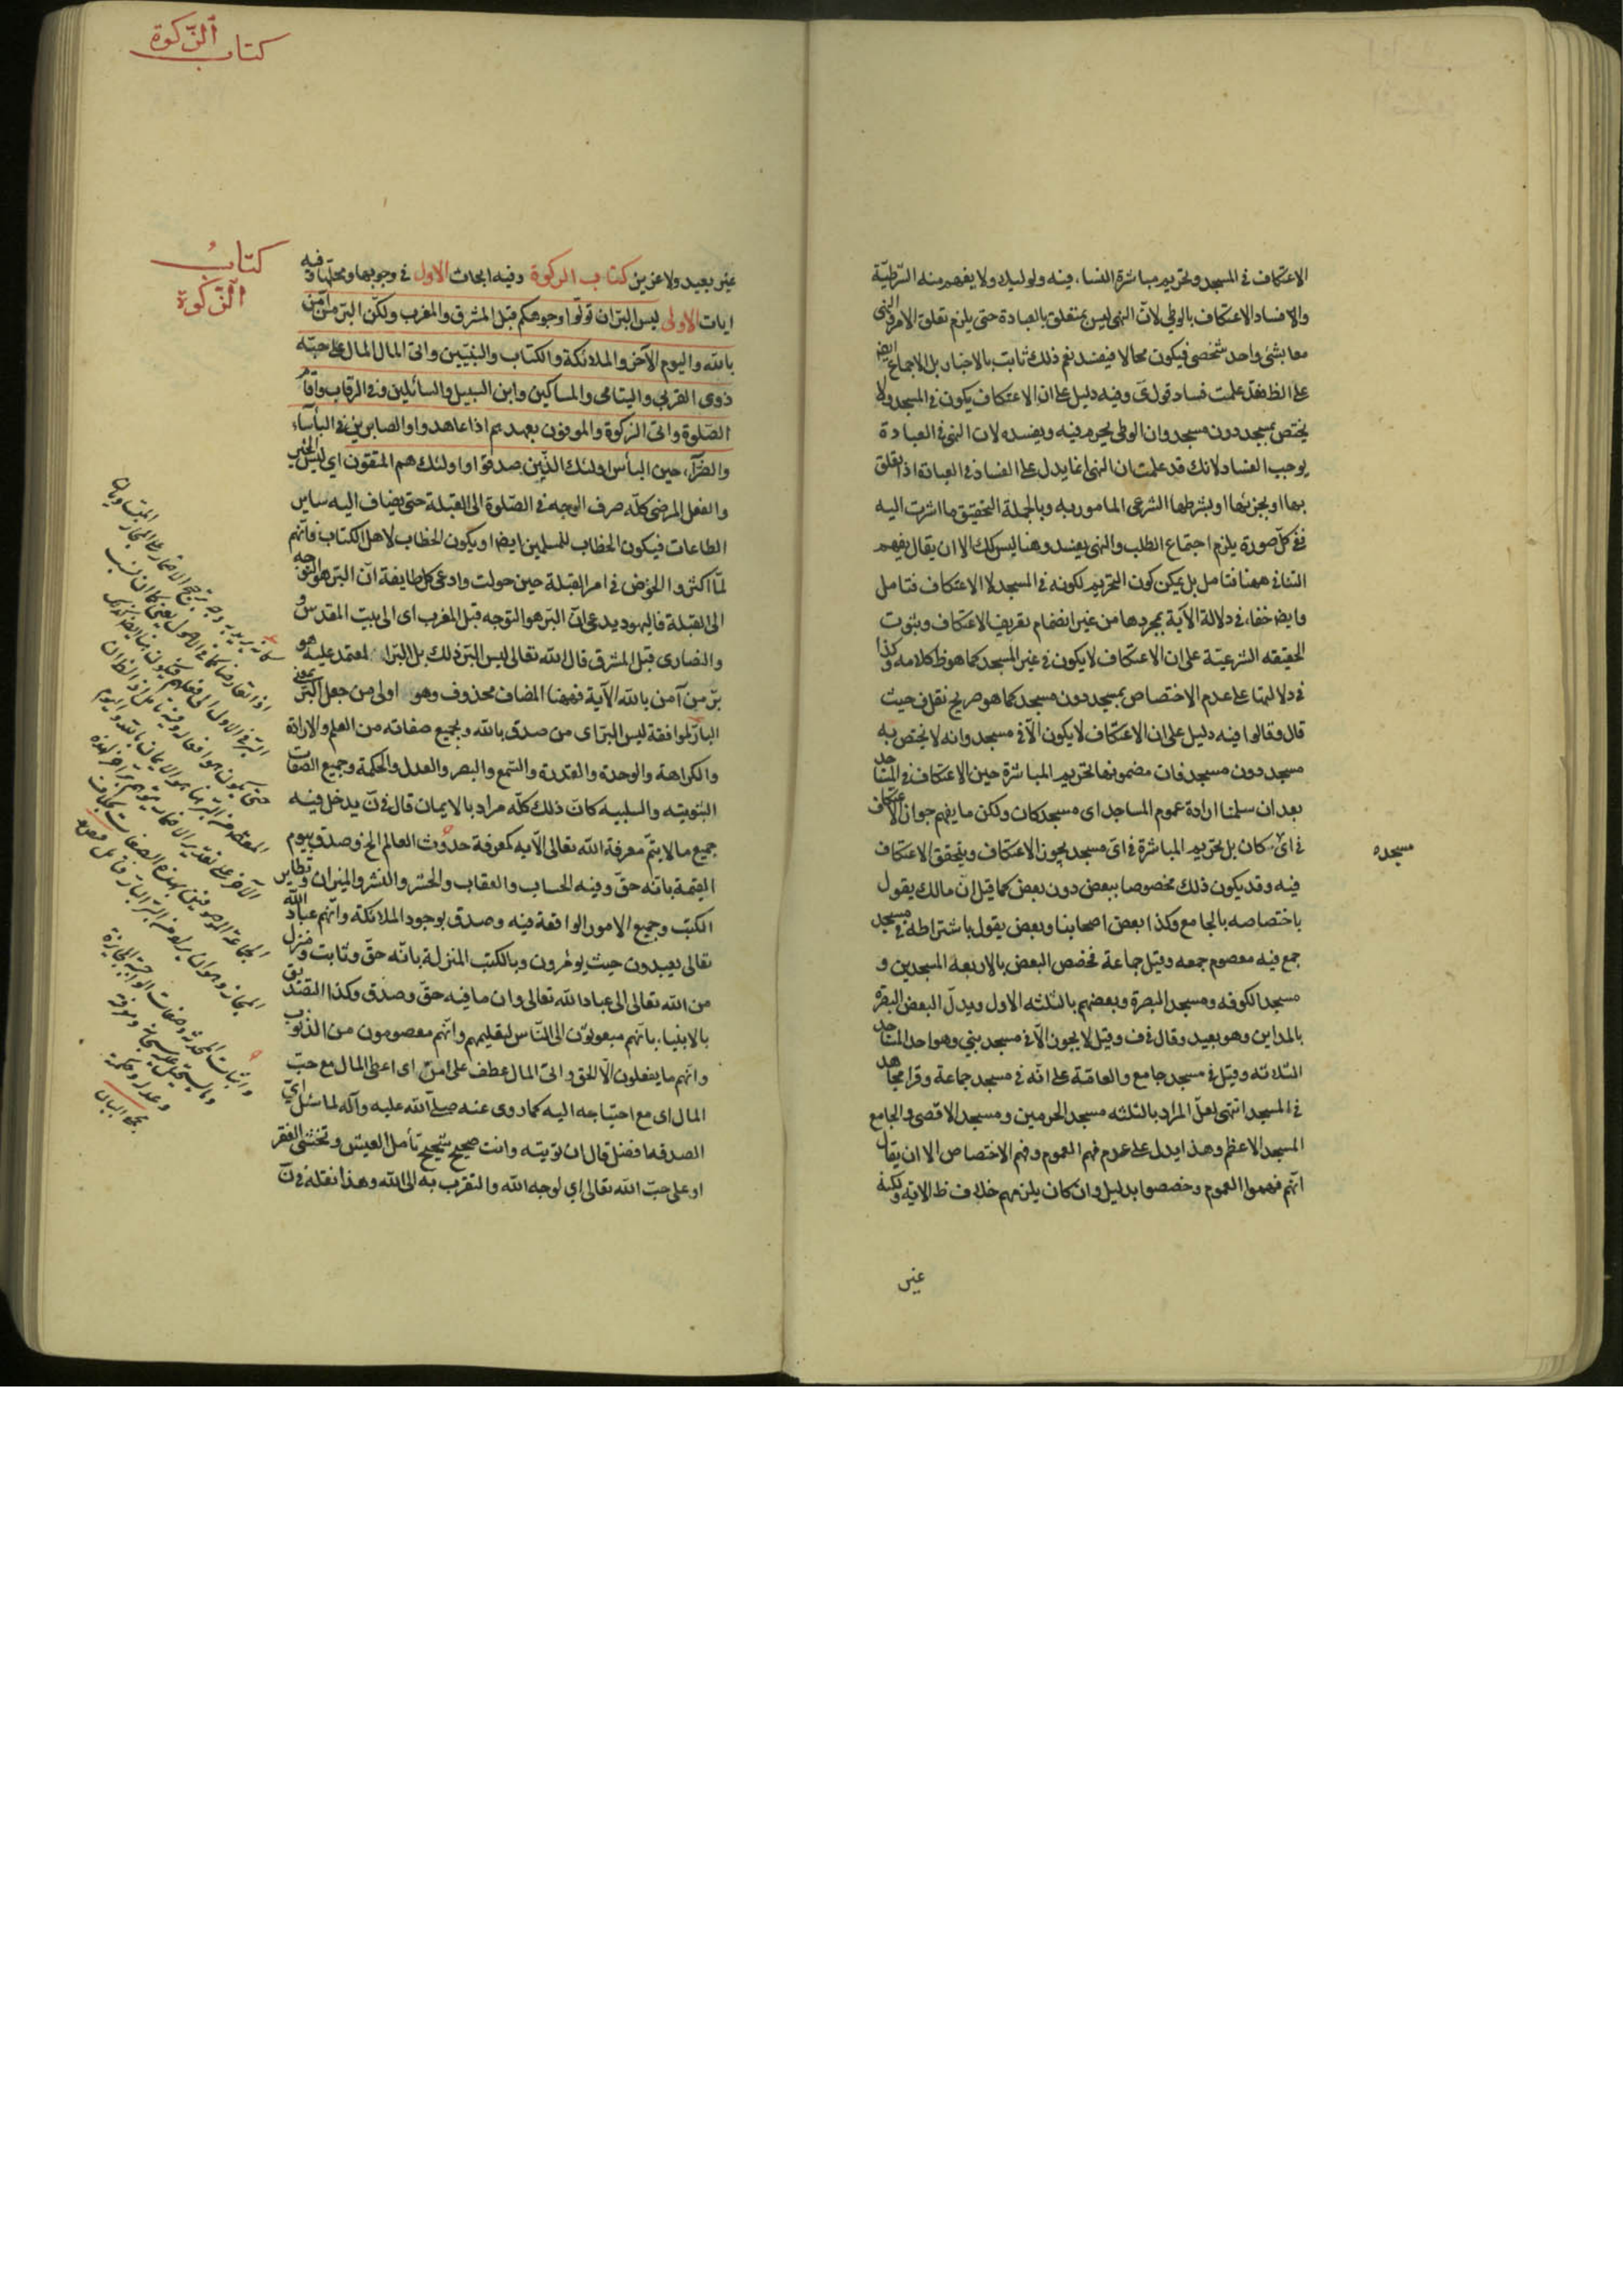 الاعتكاف في المسجد وتحريم مباشرة النساء فيه ولو ليلا ولا يفهم منه الشرطيّة
والافساد الاعتكاف بالوطي لانّ النهى ليس بمتعلق بالعبادة حتى يلزم تعلق الامر والنهى
معا بشئ واحد شخصى فيكون محالا فيفسد نعم ذلك ثابت بالاخبار بل الاجماع ايض
على الظ فقد علمت فساد قول ى وفيه دليل على ان الاعتكاف يكون في المسجد ولا
يختص بمسجد دون مسجد وان الوطى يحرم فيه ويفسده لان النهى في العبادة
يوجب الفساد لانك قد علمت ان النهى انما يدل على الفساد في العبادة اذا تعلق
بها او بجزئها او بشرطها الشرعى المامور به وبالجملة التحقيق ما اشرت اليه
ففي كلّ صورة يلزم اجتماع الطلب والنهى يفسد وهنا ليس كك الا ان يقال يفهم
التنافى ههنا فتامل بل يمكن كون التحريم لكونه في المسجد لا الاعتكاف فتامل
وايضا خفاء في دلالة الآية بمجردها من غير انضمام تعريف الاعتكاف وثبوت
الحقيقه الشرعيّة على ان الاعتكاف لا يكون في غير المسجد كما هو ظ كلامه وكذا
في دلالتها على عدم الاختصاص بمسجد دون مسجد كما هو صريح نقل ف حيث
قال وقالوا فيه دليل على ان الاعتكاف لا يكون الّا في مسجد وانه لا يختص به
مسجد دون مسجد فان مضمونها تحريم المباشرة حين الاعتكاف في المساجد
بعد ان سلمنا ارادة عموم المساجد اى مسجد كان ولكن ما يفهم جواز الاعتكاف
في اىّ كان بل تحريم المباشرة في اىّ مسجد يجوز الاعتكاف ويتحقق الاعتكاف
مسجده
فيه وقد يكون ذلك مخصوصا ببعض دون بعض كما قيل انّ مالك يقول
باختصاصه بالجامع وكذا بعض اصحابنا وبعض يقول باشتراطه في مسجد
جمع فيه معصوم جمعه وقيل جماعة فخصص البعض بالاربعه المسجدين و
مسجد الكوفه ومسجد البصرة وبعضهم بالثلثه الاول ويدلّ البعض البصره
بالمداين وهو بعيد وقال في ف وقيل لا يجوز الّا في مسجد نبي وهو احد المساجد
الثلاثه وقيل في مسجد جامع والعامّة على انّه في مسجد جماعة وقرا مجاهد
في المسجد انتهى لعلّ المراد بالثلثه مسجد الحرمين ومسجد الاقصى والجامع
المسجد الاعظم وهذا يدل على عدم فهم العموم وفهم الاختصاص الا ان يقال
انّهم فهموا العموم وخصصوا بدليل وان كان يلزمهم خلاف ظ الاية ولكنه
غير
كتاب الزّكوة
كتابُ
الزّكوة
غير بعيد ولا عزيز كتاب الزكوة وفيه ابحاث الاول في وجوبها ومحلّها وفيه
ايات الاولى ليس البرّ ان تولّوا وجوهكم قبل المشرق والمغرب ولكنّ البرّ من آمن
بالله واليوم الآخر والملائكة والكتاب والنبيّين واتى المال على حبّه
ذوى القربى واليتامى والمساكين وابن السبيل والسائلين وفي الرقاب واقام
الصّلوة واتى الزكوة والموفون بعهدهم اذا عاهدوا والصابرين في البأساء
والضرّاء حين البأس اولئك الذّين صدقوا واولئك هم المتقون اي ليس الخير
والفعل المرضى كلّه صرف الوجه في الصّلوة الى القبلة حتى يضاف اليه ساير
الطاعات فيكون الخطاب للمسلمين ايضا او يكون الخطاب لاهل الكتاب فانّهم
لمّا اكثروا الخوض في امر القبلة حين حولت وادعى كل طايفة انّ البرّ هو التوجه
الى القبلة فاليهود يدعى انّ البرّ هو التوجه قبل المغرب اى الى بيت المقدس و
والنصارى قبل المشرق قال الله تعالى ليس البرّ ذلك بل البرّ المعتمد عليه هو
برّ من آمن بالله الآية فههنا المضاف محذوف وهو اولى من جعل البرّ بمعنى
البارّ لموافقة ليس البرّ اى من صدق بالله وبجميع صفاته من العلم والارادة
والكراهة والوحدة والقدرة والسّمع والبصر والعدل والحكمة وجميع الصّفات
الثبوتيه والسلبيه كانّ ذلك كلّه مراد بالايمان قال في نّ يدخل فيه
جميع ما لا يتمّ معرفة الله تعالى الّا به كمعرفة حدوث العالم الخ وصدق بيوم
القيمة بانّه حقّ وفيه الحساب والعقاب والحشر والنشر والميزان وتطاير
الكتب وجميع الامور الواقعة فيه وصدق بوجود الملائكة وانّهم عباد الله
تعالى يعبدون حيث يؤمرون وبالكتب المنزلة بانّه حقّ وثابت ومنزل
من الله تعالى الى عباد الله تعالى وان ما فيه حقّ وصدق وكذا التصديق
بالانبياء بانّهم مبعوثون الى النّاس لتعليمهم وانّهم معصومون من الذنوب
وانّهم ما يفعلون الّا الحق واتى المال عطف على امن اى اعطى المال مع حبّ
المال اى مع احتياجه اليه كما روى عنه صلّى الله عليه وآله لما سئل اىّ
الصدقه افضل قال ان تؤتيته وانت صحيح شحيح تأمل العيش وتخشى الفقر
او على حبّ الله تعالى اي لوجه الله والتقرب به الى الله وهذا نقله في نّ